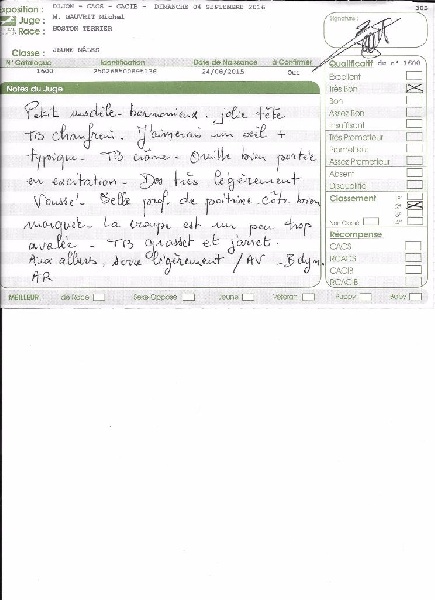 Exposition : DIJON - CACS - CACIB - DIMANCHE 04 SEPTEMBRE 2016
305
Juge : M. MAUVAIT Michel
Race : BOSTON TERRIER
Signature :
Classe : JEUNE MÂLES
N° Catalogue Identification Date de Naissance à Confirmer
1600 24/06/2015 Oui
Qualificatif du n° 1600
Notes du Juge
Excellent
Très Bon
Bon
Assez Bon
Insuffisant
Très Prometteur
Prometteur
Assez Prometteur
Absent
Disqualifié
Classement
Non Classé
Récompense
CACS
RCACS
CACIB
RCACIB
Petit modèle harmonieux. jolie tête
TB chanfrein. J'aimerais un oeil +
typique - TB crâne - Oreille bien portée
en excitation - Dos très légèrement
voussé - Belle prof. de poitrine - Côte bien
marquée - La croupe est un peu trop
avalée - TB grasset et jarret.
Aux allures, serre légèrement / AV -
AR
MEILLEUR de Race Sexe Opposé Jeune Vétéran Puppy Baby